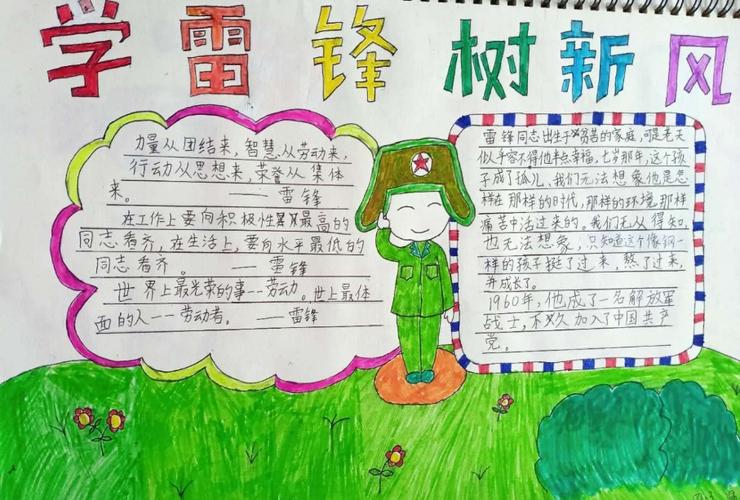 学雷锋树新风
力量从团结来，智慧从劳动来，
行动从思想来，荣誉从集体
来。 ——雷锋
在工作上要向积极性最高的
同志看齐，在生活上，要向水平最低的
同志看齐。 ——雷锋
世界上最光荣的事--劳动。世上最体
面的人--劳动者。 ——雷锋
雷锋同志出生于贫苦的家庭，可是老天
似乎容不得他半点幸福，七岁那年，这个孩
子成了孤儿，我们无法想象他是怎
样在那样的时代，那样的环境，那样
痛苦中活过来的。我们无从得知，
也无法想象，只知道这个像钢一
样的孩子挺了过来，熬了过来，
并成长了。
1960年，他成了一名解放军
战士，不久加入了中国共产
党。